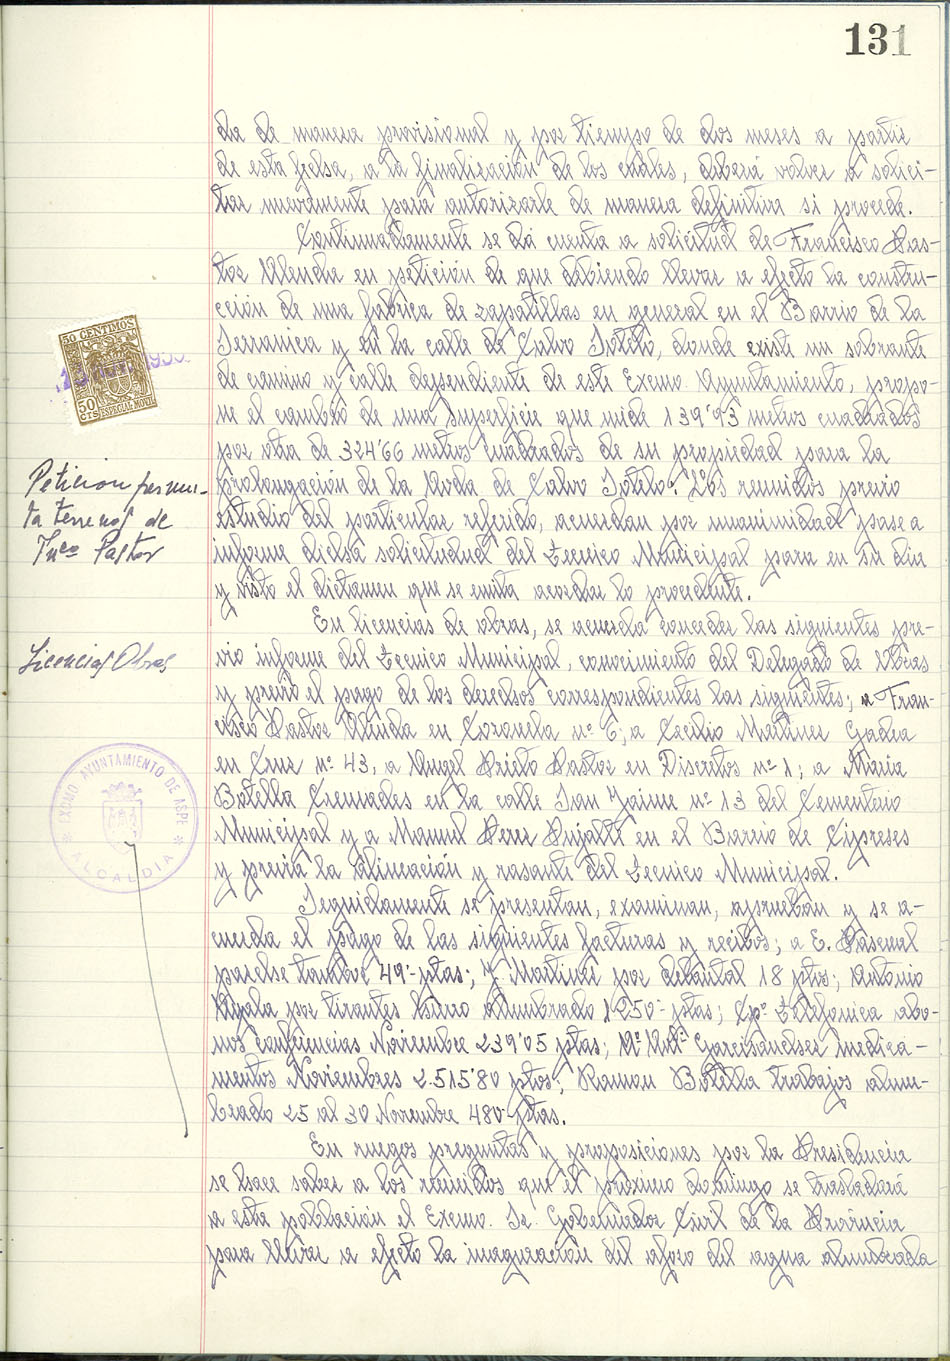 131
da de manera provisional y por tiempo de dos meses a partir
de esta fecha, a la finalización de los cuales, deberá volver a solici-
tar nuevamente para autorizarle de manera definitiva si procede.
Continuadamente se da cuenta a solicitud de Francisco Pas-
tor Alenda en petición de que debiendo llevar a efecto la constru-
cción de una fabrica de zapatillas en general en el Barrio de la
Serranica y en la calle de Calvo Sotelo, donde existe un sobrante
de camino y calle dependiente de este Excmo. Ayuntamiento, propo-
ne el cambio de una superficie que mide 139'93 metros cuadrados
por otra de 324'66 metros cuadrados de su propiedad para la
prolongación de la Avda de Calvo Sotelo. Los reunidos previo
estudio del particular referido, acuerdan por unanimidad pase a
informe dicha solicitud del Tecnico Municipal para en su dia
y visto el dictamen que se emita acordar lo procedente.
En licencias de obras, se acuerda conceder las siguientes pre-
vio informe del Tecnico Municipal, conocimiento del Delegado de Obras
y previo el pago de los derechos correspondientes las siguientes; a Fran-
cisco Pastor Alenda en Coronela nº 6; a Cecilio Martinez Gadea
en Cruz nº 43, a Angel Prieto Pastor en Discritos nº 1; a Maria
Botella Cremades en la calle San Jaime nº 13 del Cementerio
Municipal y a Manuel Perez Pujalte en el Barrio de Cipreses
y previa la alineación y rasante del Tecnico Municipal.
Seguidamente se presentan, examinan, aprueban y se a-
cuerda el pago de las siguientes facturas y recibos; a E. Pascual
parche tambor 49'- ptas; J. Martinez por delantal 18 ptas; Antonio
Ayala por tirantes hierro alumbrado 1250- ptas; Cpª Telefonica abo-
nos conferencias Noviembre 239'05 ptas; Mª Garcisanchez medica-
mentos Noviembres 2.515'80 ptas; Ramon Botella trabajos alum-
brado 25 al 30 Novembre 480- ptas.
En ruegos preguntas y proposiciones por la Presidencia
se hace saber a los reunidos que el próximo domingo se trasladará
a esta población el Excmo. Sr. Gobernador Civil de la Provincia
para llevar a efecto la inaguración del aforo del agua alumbrada
50 CENTIMOS
50 CTS
ESPECIAL MOVIL
Peticion permu-
ta terrenos de
Fnco Pastor
Licencias Obras
EXCMO AYUNTAMIENTO DE ASPE
* ALCALDIA *